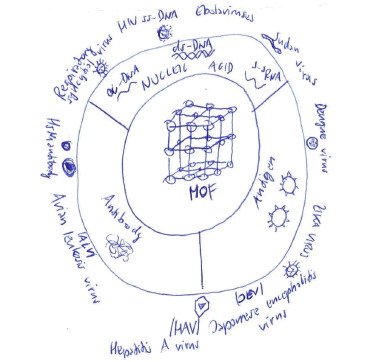 HIV ss-DNA
Ebolaviruses
Sudan virus
Dengue virus
ZIKA VIRUS
Japanese encephalitis virus
(JEV)
(HAV)
Hepatitis A virus
Avian leukosis virus
(ALV)
Respiratory syncytial virus
ds-DNA
NUCLEIC ACID
Antigen
Antibody
MOF